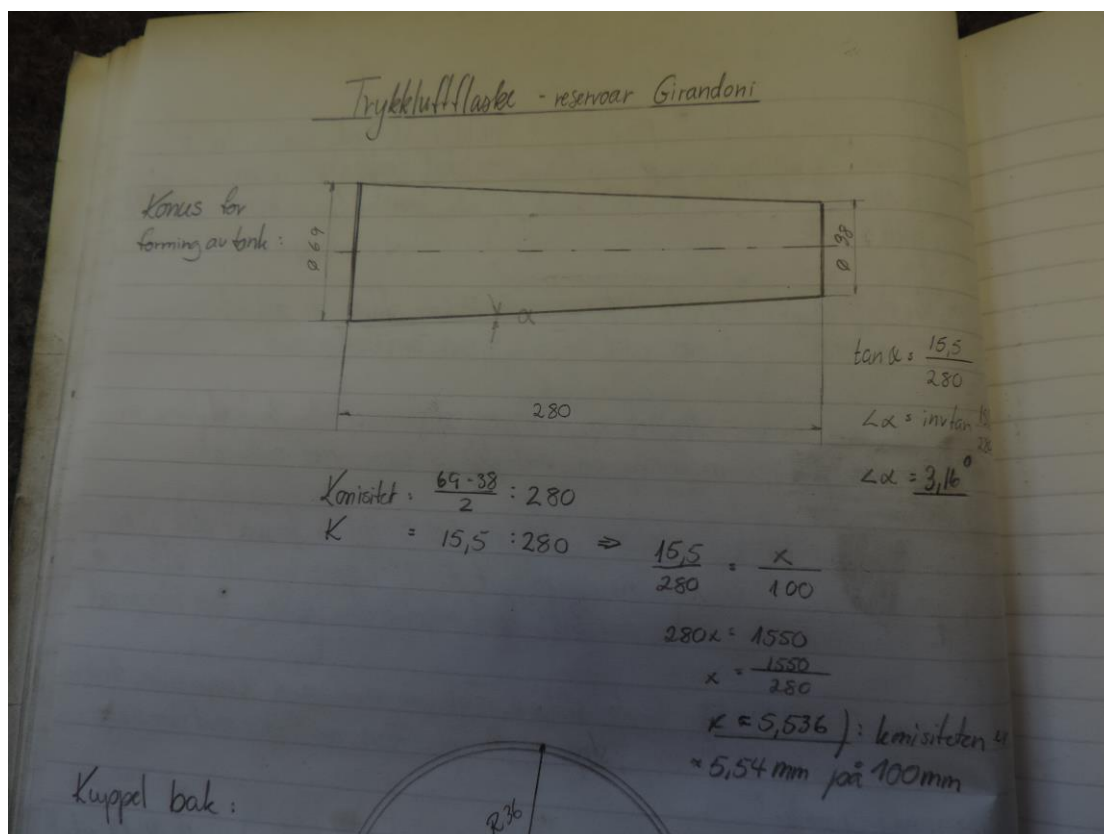 Trykkluftflaske - reservoar Girandoni
Konus for
forming av tank:
Ø 69
Ø 38
α
280
tan α = 15,5 / 280
∠α = invtan
∠α = 3,16°
Konisitet: (69-38) / 2 : 280
K = 15,5 : 280 ⇒ 15,5 / 280 = x / 100
280x = 1550
x = 1550 / 280
x = 5,536 ) : konisiteten
≈ 5,54 mm på 100mm
Kuppel bak:
R36